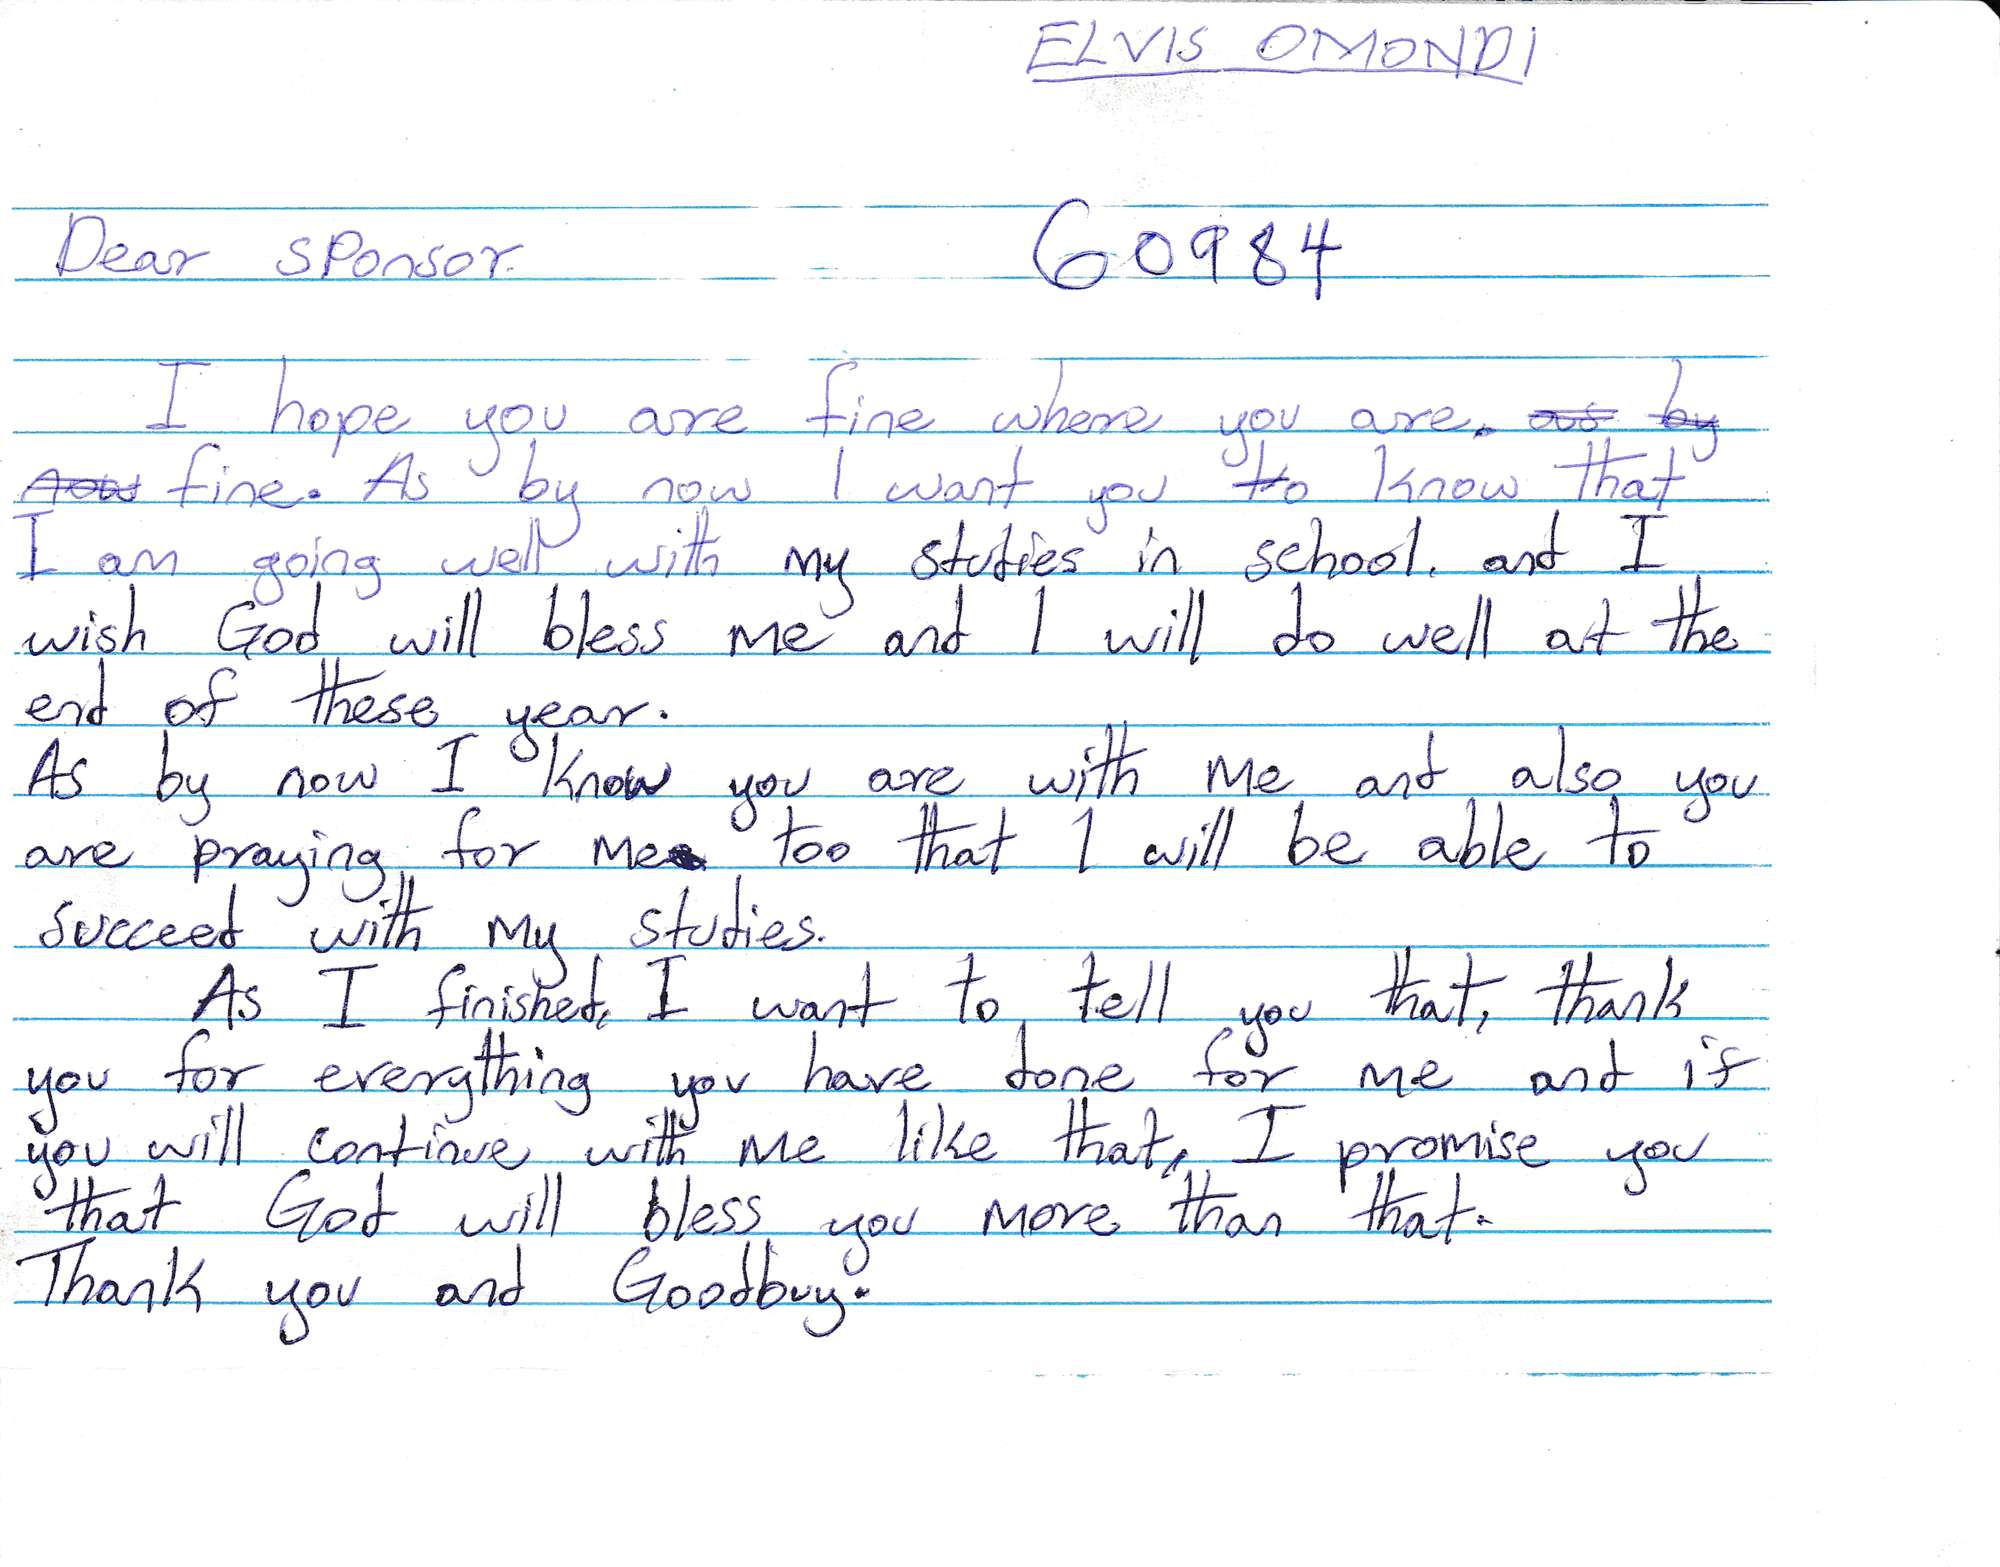 ELVIS OMONDI
Dear sponsor. 60984
I hope you are fine where you are. as by
now fine. As by now I want you to know that
I am going well with my studies in school. and I
wish God will bless me and I will do well at the
end of these year.
As by now I know you are with me and also you
are praying for me too that I will be able to
succeed with my studies.
As I finished, I want to tell you that, thank
you for everything you have done for me and if
you will continue with me like that, I promise you
that God will bless you more than that.
Thank you and Goodbuy.